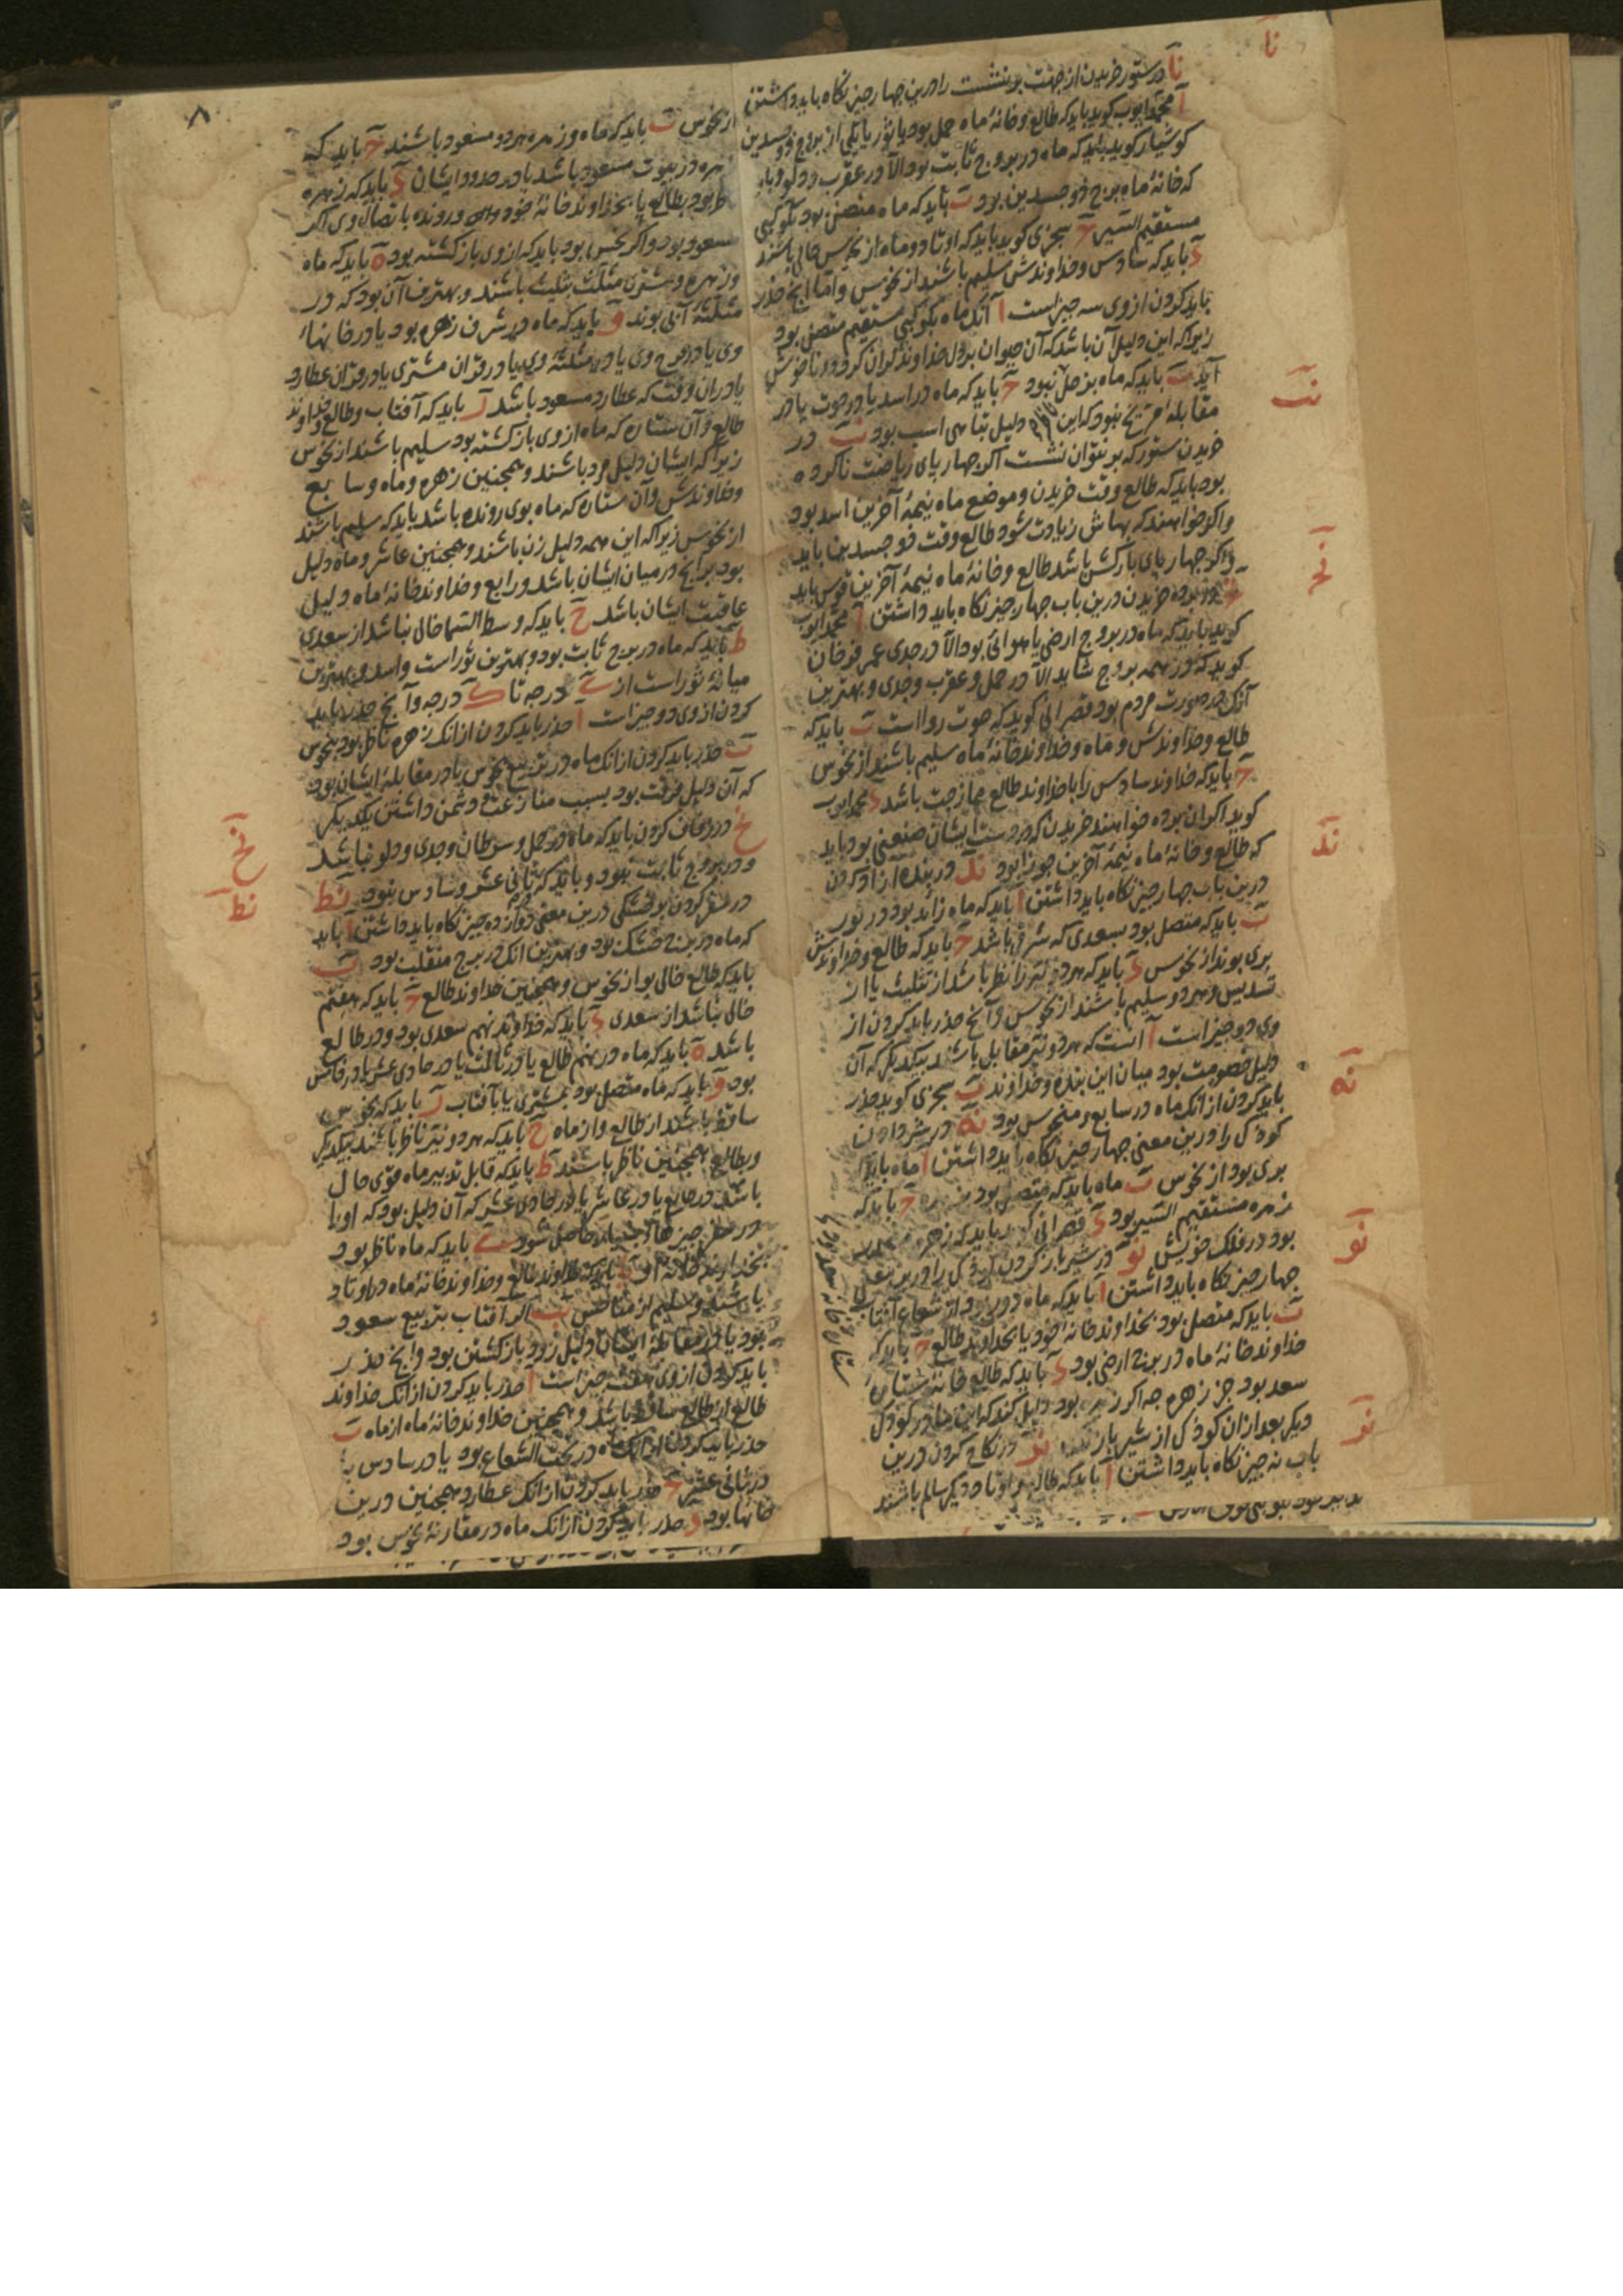 نآ
نآ در ستور خریدن از جهت بر نشست را درین چهار چیز نکاه باید داشتن
آ محمد ایوب کوید باید که طالع و خانهٔ ماه حمل بود یا ثور یا یکی از بروج ذو جسدین
کوشیار کوید باید که ماه در بروج ثابت بود الا در عقرب و دلو و باید
که خانهٔ ماه برج ذو جسدین بود بَ باید که ماه متصل بود بکوکبی
مستقیم السیر جَ سجزی کوید باید که اوتاد و ماه از نحوس خالی باشند
دَ باید که سادس و خداوندش سلیم باشند از نحوس و اما آنچ حذر
باید کردن از وی سه چیز است آ آنک ماه بکوکبی مستقیم متصل بود
زیراکه این دلیل آن باشد که آن حیوان بر دل خداوند کران کردد و ناخوش
آید بَ باید که ماه بزحل نبود جَ باید که ماه در اسد یا در حوت یا در
مقابلهٔ مریخ نبود که این دلیل تباهی اسب بود نب در
خریدن ستور که بر نتوان نشست اکر چهار پای ریاضت ناکرده
بود باید که طالع وقت خریدن و موضع ماه نیمهٔ آخرین اسد بود
و اکر خواهند که بهاش زیادت شود طالع وقت ذو جسدین باید
و اکر چهار پای بارکش باشد طالع و خانهٔ ماه نیمهٔ آخرین قوس باید
برده خریدن درین باب چهار چیز نکاه باید داشتن آ محمد ایوب
کوید باید که ماه در بروج ارضی یا هوائی بود الا در جدی عمر فرخان
کوید که در همه بروج شاید الا در حمل و عقرب و جدی و بهترین
آنک در صورت مردم بود قصرانی کوید که حوت روا است بَ باید که
طالع و خداوندش و ماه و خداوند خانهٔ ماه سلیم باشند از نحوس
جَ باید که خداوند سادس را با خداوند طالع ممازجت باشد دَ محمد ایوب
کوید اکر آن برده خواهند خریدن که در دست ایشان صنعتی بود باید
که طالع و خانهٔ ماه نیمهٔ آخرین جوزا بود ند در بنده آزاد کردن
درین باب چهار چیز نکاه باید داشتن آ باید که ماه زائد بود در نور
بَ باید که متصل بود بسعدی که شرقی باشد جَ باید که طالع و خداوندش
بری بوند از نحوس دَ باید که هر دو نیر را نظر باشد از تثلیث یا از
تسدیس و هر دو سلیم باشند از نحوس و آنچ حذر باید کردن از
وی دو چیز است آ است که هر دو نیر مقابل باشند بیکدیکر که آن
دلیل خصومت بود میان این بنده و خداوند بَ سجزی کوید حذر
باید کردن از آنک ماه در سابع و منحوس بود نه در شیر دادن
کودک را درین معنی چهار چیز نکاه باید داشتن آ ماه باید که
بری بود از نحوس بَ ماه باید که متصل بود جَ باید که
زهره مستقیم السیر بود دَ قصرانی باید که زهره
بود در فلک خویش نو در شیر باز کردن کودک را درین معنی
چهار چیز نکاه باید داشتن آ باید که ماه دور بود از شعاع آفتاب
بَ باید که متصل بود بخداوند خانهٔ خود یا بخداوند طالع جَ باید که
خداوند خانهٔ ماه در برج ارضی بود دَ باید که طالع خانهٔ ستارهٔ
سعد بود جز زهره چه اکر بود دلیل کند که این مادر کودک
دیکر بعد از آن کودک از شیر باز نز در نکاح کردن درین
باب نه چیز نکاه باید داشتن آ باید که طالع و اوتاد دیکر سالم باشند
نب
نج
ند
نه
نو
نز
۸
از نحوس بَ باید که ماه و زهره هر دو مسعود باشند جَ باید که
زهره در بیوت مسعود باشد یا در حدود ایشان دَ باید که زهره
بود بطالع یا بخداوند خانهٔ خود و رونده باتصال وی اکر
مسعود بود و اکر نحس بود باید که از وی باز کشته بود هَ باید که ماه
و زهره و مشتری مثلث بتثلیث باشند و بهترین آن بود که در
مثلثهٔ آبی بوند وَ باید که ماه در شرف زهره بود یا در خانهاء
وی یا در فرح وی یا در مثلثهٔ وی یا در قران مشتری یا در قران عطارد
یا در آن وقت که عطارد مسعود باشد زَ باید که آفتاب و طالع و خداوند
طالع و آن ستاره که ماه از وی باز کشته بود سلیم باشند از نحوس
زیرا که ایشان دلیل مرد باشند و همچنین زهره و ماه و سابع
و خداوندش و آن ستاره که ماه بوی رونده باشد باید که سلیم باشند
از نحوس زیرا که این همه دلیل زن باشند و همچنین عاشر و ماه دلیل
بود بر آنچ در میان ایشان باشد و رابع و خداوند خانهٔ ماه دلیل
عاقبت ایشان باشد حَ باید که وسط السما خالی نباشد از سعدی
طَ باید که ماه در برج ثابت بود و بهترین ثور است و اسد و بهترین
میانهٔ ثور است از درجه تا درجه و آنچ حذر باید
کردن از وی دو چیز است آ حذر باید کردن از آنک زهره ناظر بود بنحوس
بَ حذر باید کردن از آنک ماه در تربیع نحوس یا در مقابلهٔ ایشان بود
که آن دلیل فرقت بود بسبب منازعت و دشمن داشتن یکدیکر
نح در زفاف کردن باید که ماه در حمل و سرطان و جدی و دلو نباشد
و در بروج ثابت نبود و باید که ثانی عشر و سادس نبود نط
در سفر کردن بر خشکی درین معنی دوازده چیز نکاه باید داشتن آ باید
که ماه در برج خشک بود و بهترین آنک در برج منقلب بود بَ
باید که طالع خالی بود از نحوس و همچنین خداوند طالع جَ باید که هفتم
خالی نباشد از سعدی دَ باید که خداوند نهم سعدی بود و در طالع
باشد هَ باید که ماه در نهم طالع یا در ثالث یا در حادی عشر یا در خامس
بود وَ باید که ماه متصل بود بمشتری یا بآفتاب زَ باید که نحوس
ساقط باشند از طالع و از ماه حَ باید که هر دو نیر ناظر باشند بیکدیکر
و بطالع همچنین ناظر باشند طَ باید که قابل تدبیر ماه قوی حال
باشد در طالع یا در عاشر یا در حادی عشر که آن دلیل بود که او را
در سفر چیزها حاصل شود یَ باید که ماه ناظر بود
بخداوند خانهٔ او یآ باید که خداوند طالع و خداوند خانهٔ ماه در اوتاد
باشند و سلیم از مناحس یب اکر آفتاب بتربیع سعود
بود یا در مقابلهٔ ایشان دلیل زود باز کشتن بود و آنچ حذر
باید کردن از وی هفت چیز است آ حذر باید کردن از آنک خداوند
طالع از طالع ساقط باشد و همچنین خداوند خانهٔ ماه از ماه بَ
حذر باید کردن از آنک ماه در تحت الشعاع بود یا در سادس یا
در ثانی عشر جَ حذر باید کردن از آنک عطارد همچنین درین
خانها بود دَ حذر باید کردن از آنک ماه در مقارنهٔ نحوس بود
نح
نط